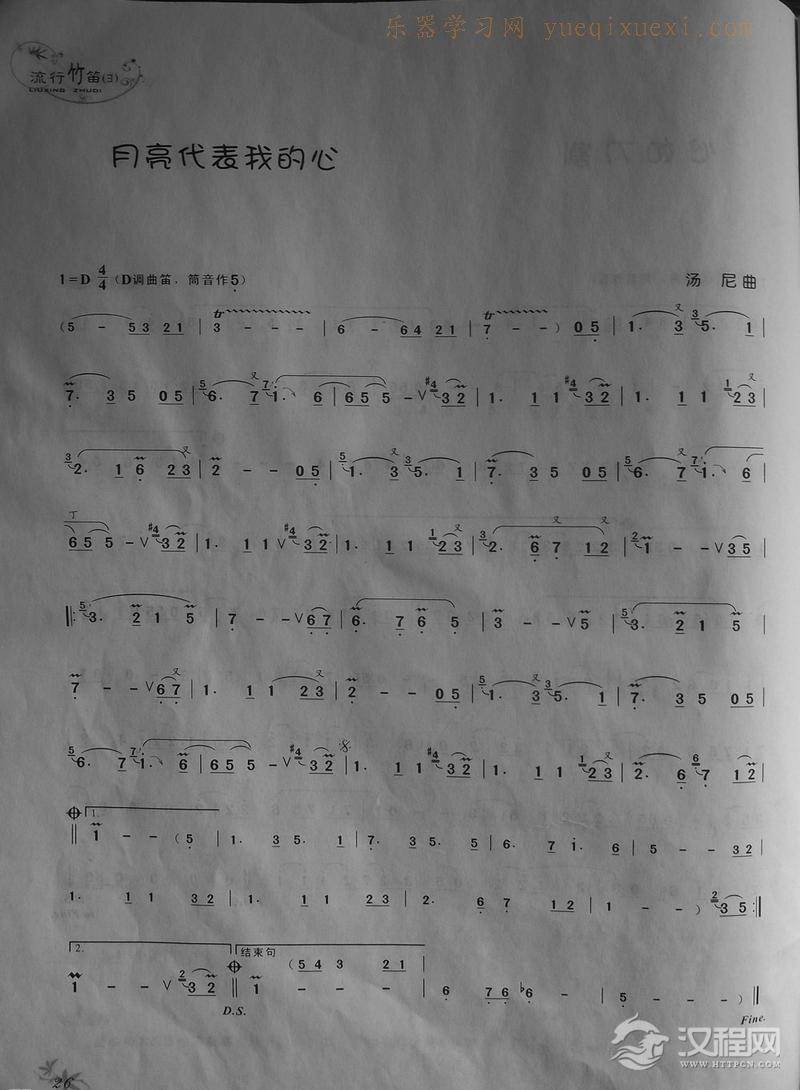 乐器学习网 yueqixuexi.com
流行竹笛(3)
LIUXING ZHUDI
月亮代表我的心
1=D 4/4 (D调曲笛，筒音作5) 汤 尼 曲
(5 - 53 21 | 3 - - - | 6 - 64 21 | 7 - - ) 05 | 1. 3 5. 1 |
7. 3 5 05 | 6. 7 1. 6 | 65 5 - V 32 | 1. 1 1 32 | 1. 1 1 23 |
2. 1 6 23 | 2 - - 05 | 1. 3 5. 1 | 7. 3 5 05 | 6. 7 1. 6 |
65 5 - V 32 | 1. 1 1 V 32 | 1. 1 1 23 | 2. 6 7 12 | 1 - - V 35 |
‖: 3. 2 1 5 | 7 - - V 67 | 6. 7 6 5 | 3 - - V 5 | 3. 2 1 5 |
7 - - V 67 | 1. 1 1 23 | 2 - - 05 | 1. 3 5. 1 | 7. 3 5 05 |
6. 7 1. 6 | 65 5 - V 32 | 1. 1 1 32 | 1. 1 1 23 | 2. 6 7 12 |
1.
‖ 1 - - (5 | 1. 3 5. 1 | 7. 3 5. 5 | 6. 7 i. 6 | 5 - - 32 |
1. 1 1 32 | 1. 1 1 23 | 2. 6 7 12 | 1 - - ) 35 :‖
2. 结束句
1 - - V 32 ‖ 1 - - (543 21 | 6 76 b6 - | 5 - - - )‖
D.S. Fine.
26
汉程网
HTTPCN.COM